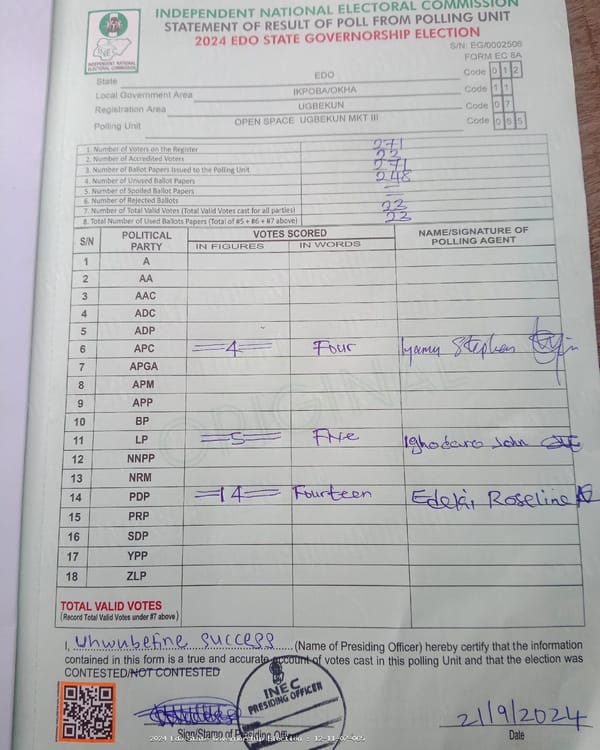 INDEPENDENT NATIONAL ELECTORAL COMMISSION
STATEMENT OF RESULT OF POLL FROM POLLING UNIT
2024 EDO STATE GOVERNORSHIP ELECTION
S/N: EG/0002506
FORM EC 8A
INEC
INDEPENDENT NATIONAL ELECTORAL COMMISSION
State EDO Code 0 1 2
Local Government Area IKPOBA/OKHA Code 1 1
Registration Area UGBEKUN Code 0 7
Polling Unit OPEN SPACE UGBEKUN MKT III Code 0 6 5
1. Number of Voters on the Register 271
2. Number of Accredited Voters 23
3. Number of Ballot Papers Issued to the Polling Unit 271
4. Number of Unused Ballot Papers 248
5. Number of Spoiled Ballot Papers —
6. Number of Rejected Ballots —
7. Number of Total Valid Votes (Total Valid Votes cast for all parties) 23
8. Total Number of Used Ballots Papers (Total of #5 + #6 + #7 above) 23
S/N POLITICAL PARTY VOTES SCORED NAME/SIGNATURE OF POLLING AGENT
IN FIGURES IN WORDS
1 A
2 AA
3 AAC
4 ADC
5 ADP
6 APC =4= Four Iyamu Stephen
7 APGA
8 APM
9 APP
10 BP
11 LP =5= Five Ighodaro John
12 NNPP
13 NRM
14 PDP =14= Fourteen Edeki Roseline
15 PRP
16 SDP
17 YPP
18 ZLP
ORIGINAL
TOTAL VALID VOTES
(Record Total Valid Votes under #7 above)
I, Uhwubetine Success (Name of Presiding Officer) hereby certify that the information
contained in this form is a true and accurate account of votes cast in this polling Unit and that the election was
CONTESTED/NOT CONTESTED
INEC
PRESIDING OFFICER
Sign/Stamp of Presiding Officer
21/9/2024
Date